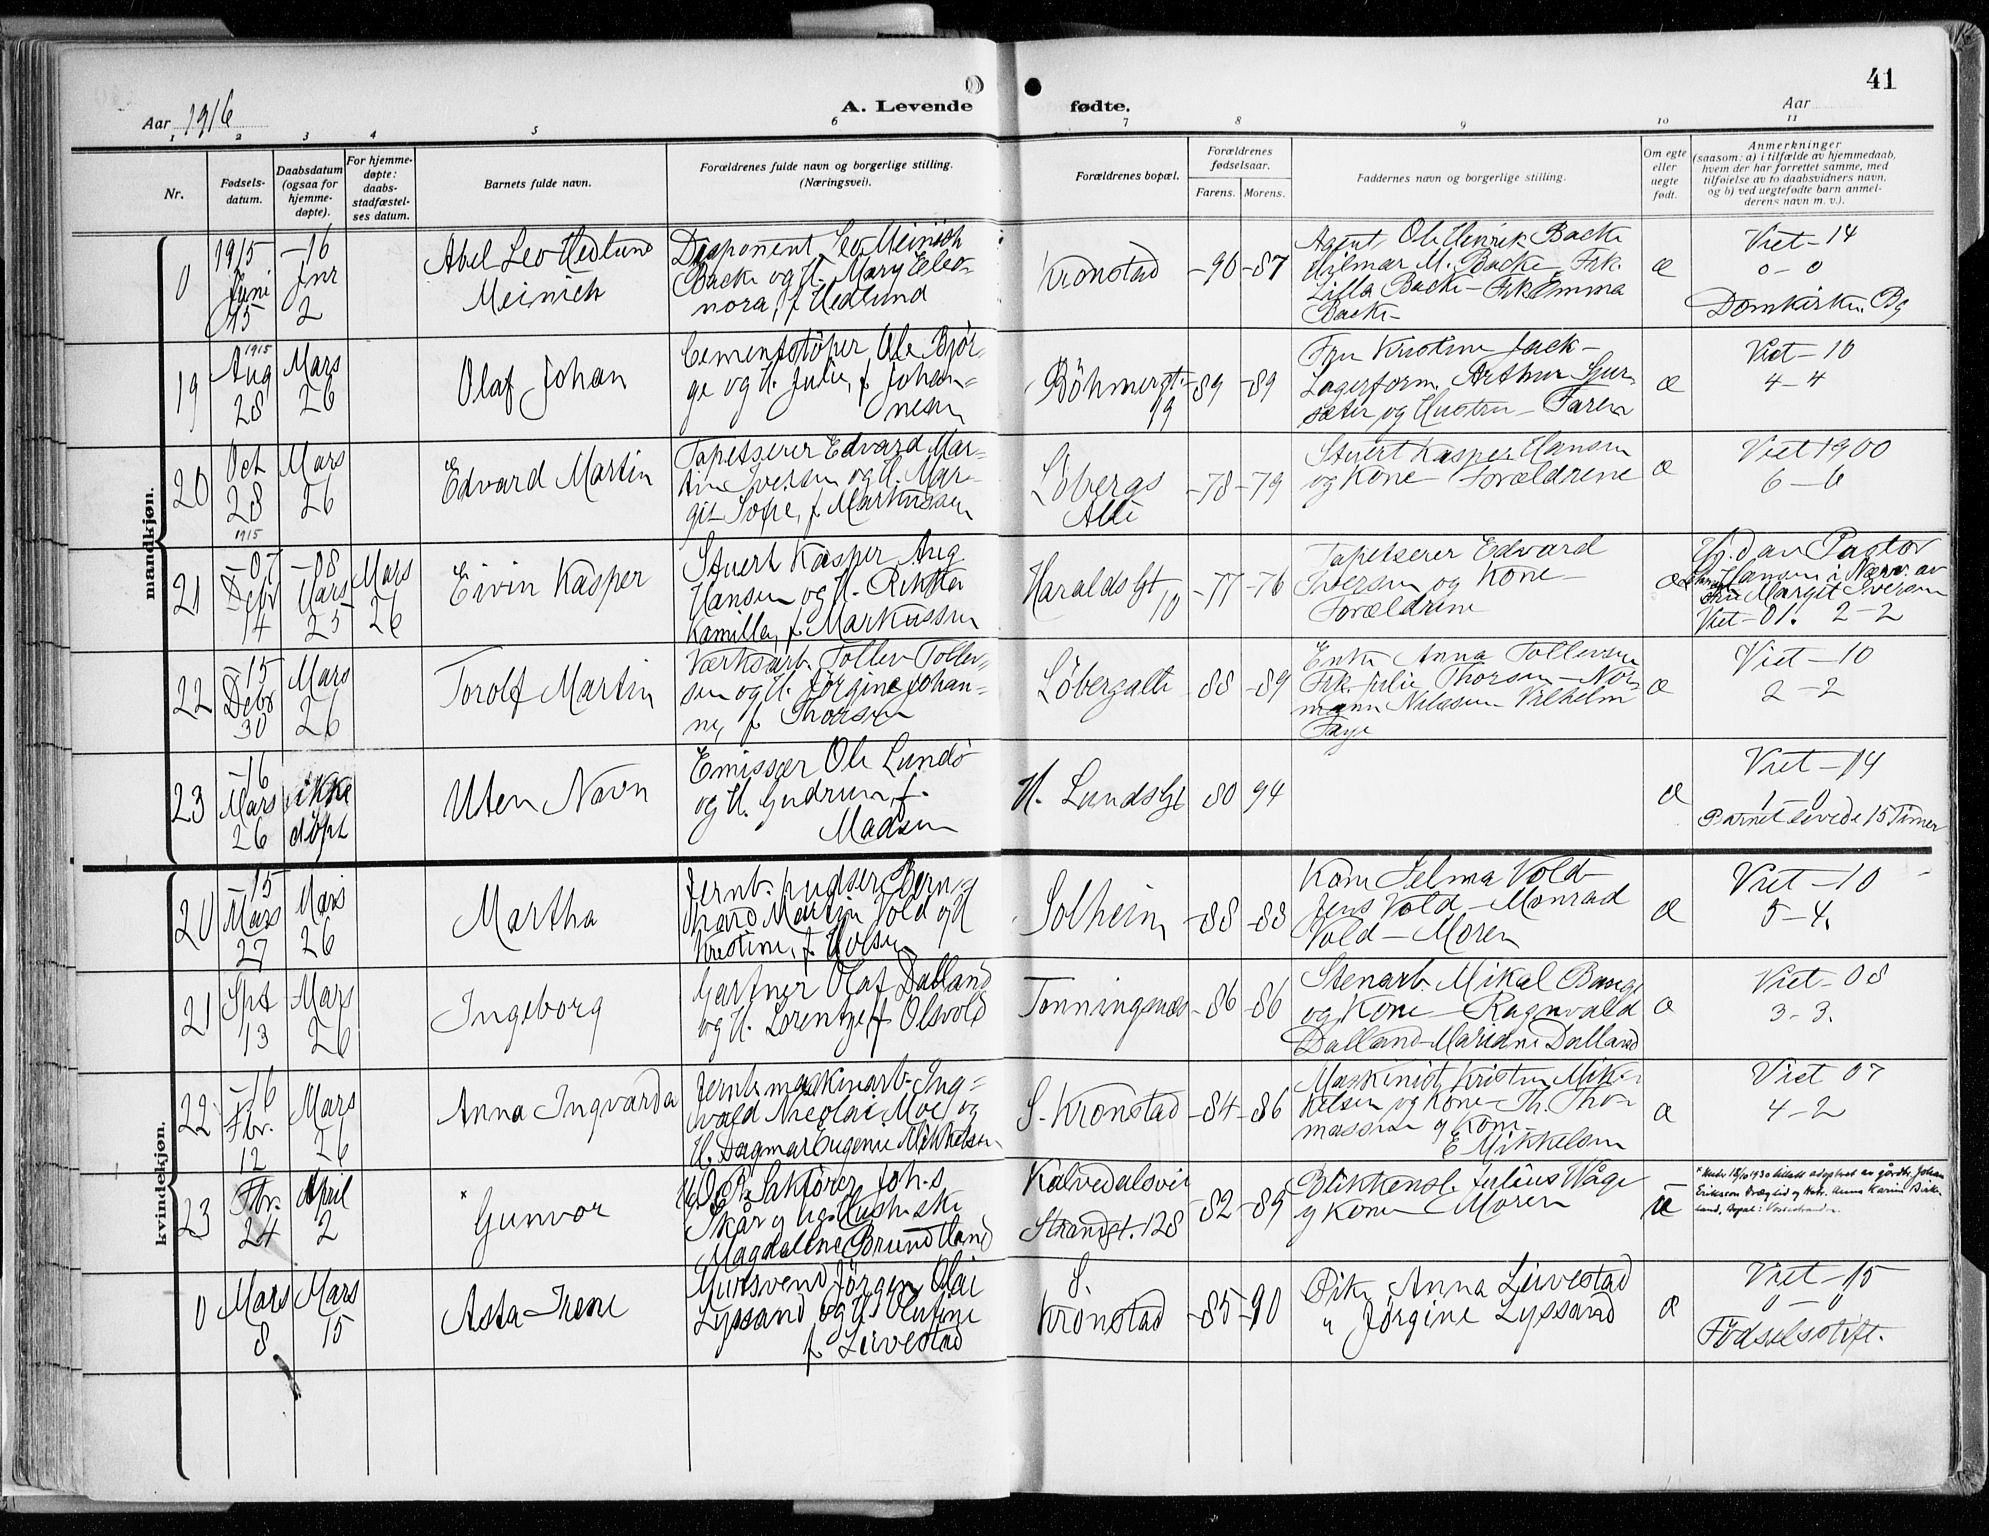 41
A. Levende fødte.
Aar 1916
Aar
1 2 3 4 5 6 7 8 9 10 11
Nr.
Fødsels-
datum.
Daabsdatum
(ogsaa for
hjemme-
døpte).
For hjemme-
døpte:
daabs-
stadfæstel-
ses datum.
Barnets fulde navn.
Forældrenes fulde navn og borgerlige stilling.
(Næringsvei).
Forældrenes bopæl.
Forældrenes
fødselsaar.
Farens. Morens.
Faddernes navn og borgerlige stilling.
Om egte
eller
uegte
født.
Anmerkninger
(saasom: a) i tilfælde av hjemmedaab,
hvem der har forrettet samme, med
tilføielse av to daabsvidners navn,
og b) ved uegtefødte barn anmel-
derens navn m. v.).
mandkjøn.
0
1915
Juni
15
-16
Jnr
2
Abel Leo Hedlund
Meinich
Disponent Leo Meinich
Backe og H. Mary Eleo-
nora, f. Hedlund
Kronstad
-90 -87
Agent Ole Henrik Backe
Hilmar M. Backe - Frk.
Lilla Backe - Frk Emma
Backe -
æ
Viet - 14
0 - 0
Domkirken Bg
19
1915
Aug
28
Mars
26
Olaf Johan
Cementstöper Ole Bjør-
ge og H. Julie, f. Johan-
nesen
Böhmergt.
19
-89 -89
Fru Kristine Jack -
Lagerform. Arthur Gjer-
sæter og Hustru - Faren
æ
Viet - 10
4 - 4
20
Oct
28
1915
Mars
26
Edvard Martin
Tapetserer Edvard Mar-
tin Iversen og H. Mar-
git Sofie, f. Markussen
Løbergs
Alle
-78 -79
Stuert Kasper Hansen
og Kone - Forældrene
æ
Viet 1900
6 - 6
21
-07
Debr
14
-08
Mars
25
Mars
26
Eivin Kasper
Stuert Kasper Aug.
Hansen og H. Rikka
Kamilla, f. Markussen
Haralds Gt
10
-77 -76
Tapetserer Edvard
Iversen og Kone -
Forældrene
æ
Hj. d av Pastor
Hansen i Nærv. av
Fru Margit Iversen
Viet - 01. 2 - 2
22
-15
Debr
30
Mars
26
Torolf Martin
Værksarb. Tollev Tollev-
sen og H. Jörgine Johan-
ne, f. Thorsen
Løbergalle
-88 -89
Enke Anna Tollevsen
Frk. Julie Thorsen - Nor-
mann Nilssen Vilhelm
Faye
æ
Viet - 10
2 - 2
23
-16
Mars
26
ikke
døpt
Uten Navn
Emissær Ole Lundö
og H. Gudrun, f.
Madsen
H. Lunds Gt
80 94
æ
Viet - 14
1 0
Barnet levede 15 Timer
kvindekjøn.
20
-15
Mars
27
Mars
26
Martha
Jernb. pudser Bern-
hard Martin Vold og H
Kristine, f. Holsen
Solheim
-88 -88
Kone Selma Vold -
Jens Vold - Monrad
Vold - Moren
æ
Viet - 10
5 - 4.
21
Spt
13
Mars
26
Ingeborg
Gartner Olaf Dalland
og H. Lorentze, f. Olsvold
Tonningsnæs
-86 -86
Stenarb. Mikal Bauge
og Kone - Ragnvald
Dalland - Mariane Dalland
æ
Viet - 08
3 - 3.
22
-16
Fbr.
12
Mars
26
Anna Ingvarda
Jernb. maskinarb. Ing-
vald Nicolai Moe og
H. Dagmar Eugenie Mikkelsen
S. Kronstad
-84 -86
Maskinist Kristen Mik-
kelsen og Kone - Th. Tho-
massen og Kone -
E Mikkelsen
æ
Viet 07
4 - 2
23
Fbr.
24
April
2
* Gunvor
Saktfører Joh-s
Skår og Hushske
Magdalene Brundtland
Kalvedalsvei
Strandgt. 128
-82 -89
Blikkensl. Julius Våge
og Kone - Moren
u
* Under 18/10 1930 tillatt adoptert av gårdbr. Johan
Erikson Vrægtid og Hstr. Anna Karine Birke-
land, bopæl: Voss
0
Mars
8
Mars
15
Asta Irene
Mursvend Jörgen Olai
Lyssand og H. Olufine
f. Leivestad
S.
Kronstad
-85 -90
Pike Anna Leivestad
" Jørgine Lyssand
æ
Viet - 15
0 - 0
Fødselsstift.